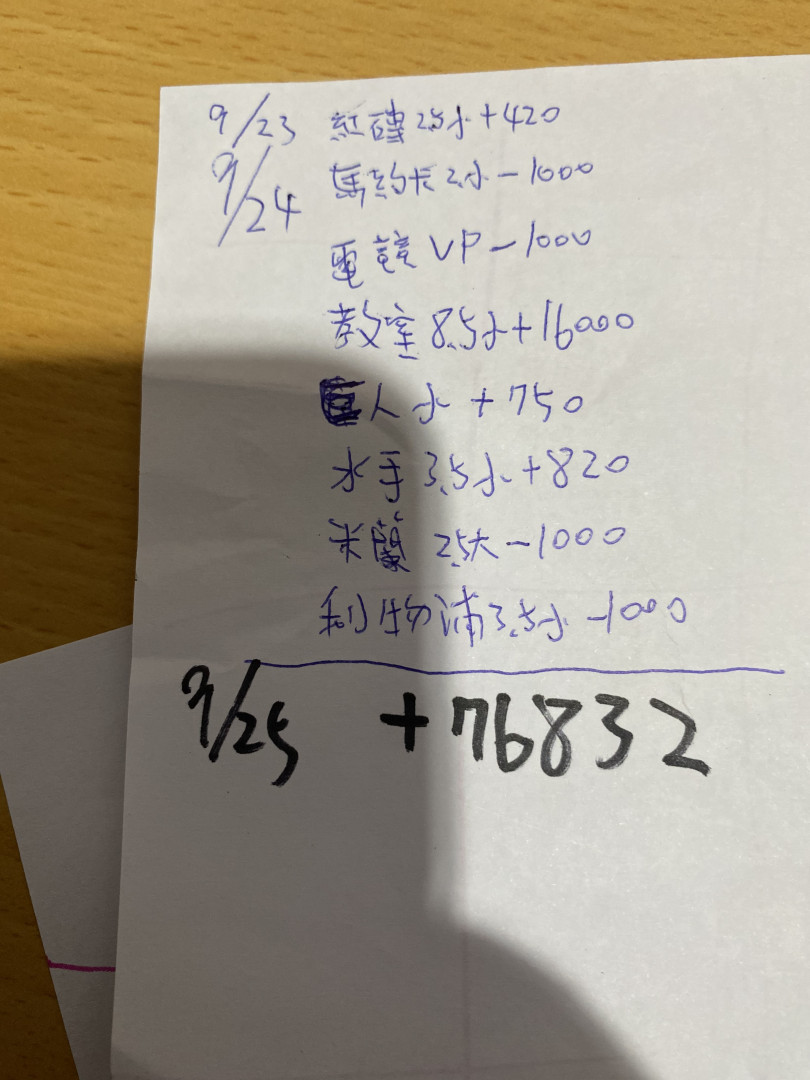 9/23 紅磚 2.5小 + 420
9/24 馬約卡 2.小 - 1000
電競 VP - 1000
教室 8.5小 + 16000
巨人 小 + 750
水手 3.5小 + 820
米蘭 2.5大 - 1000
利物浦 3.5小 - 1000
9/25 + 76832